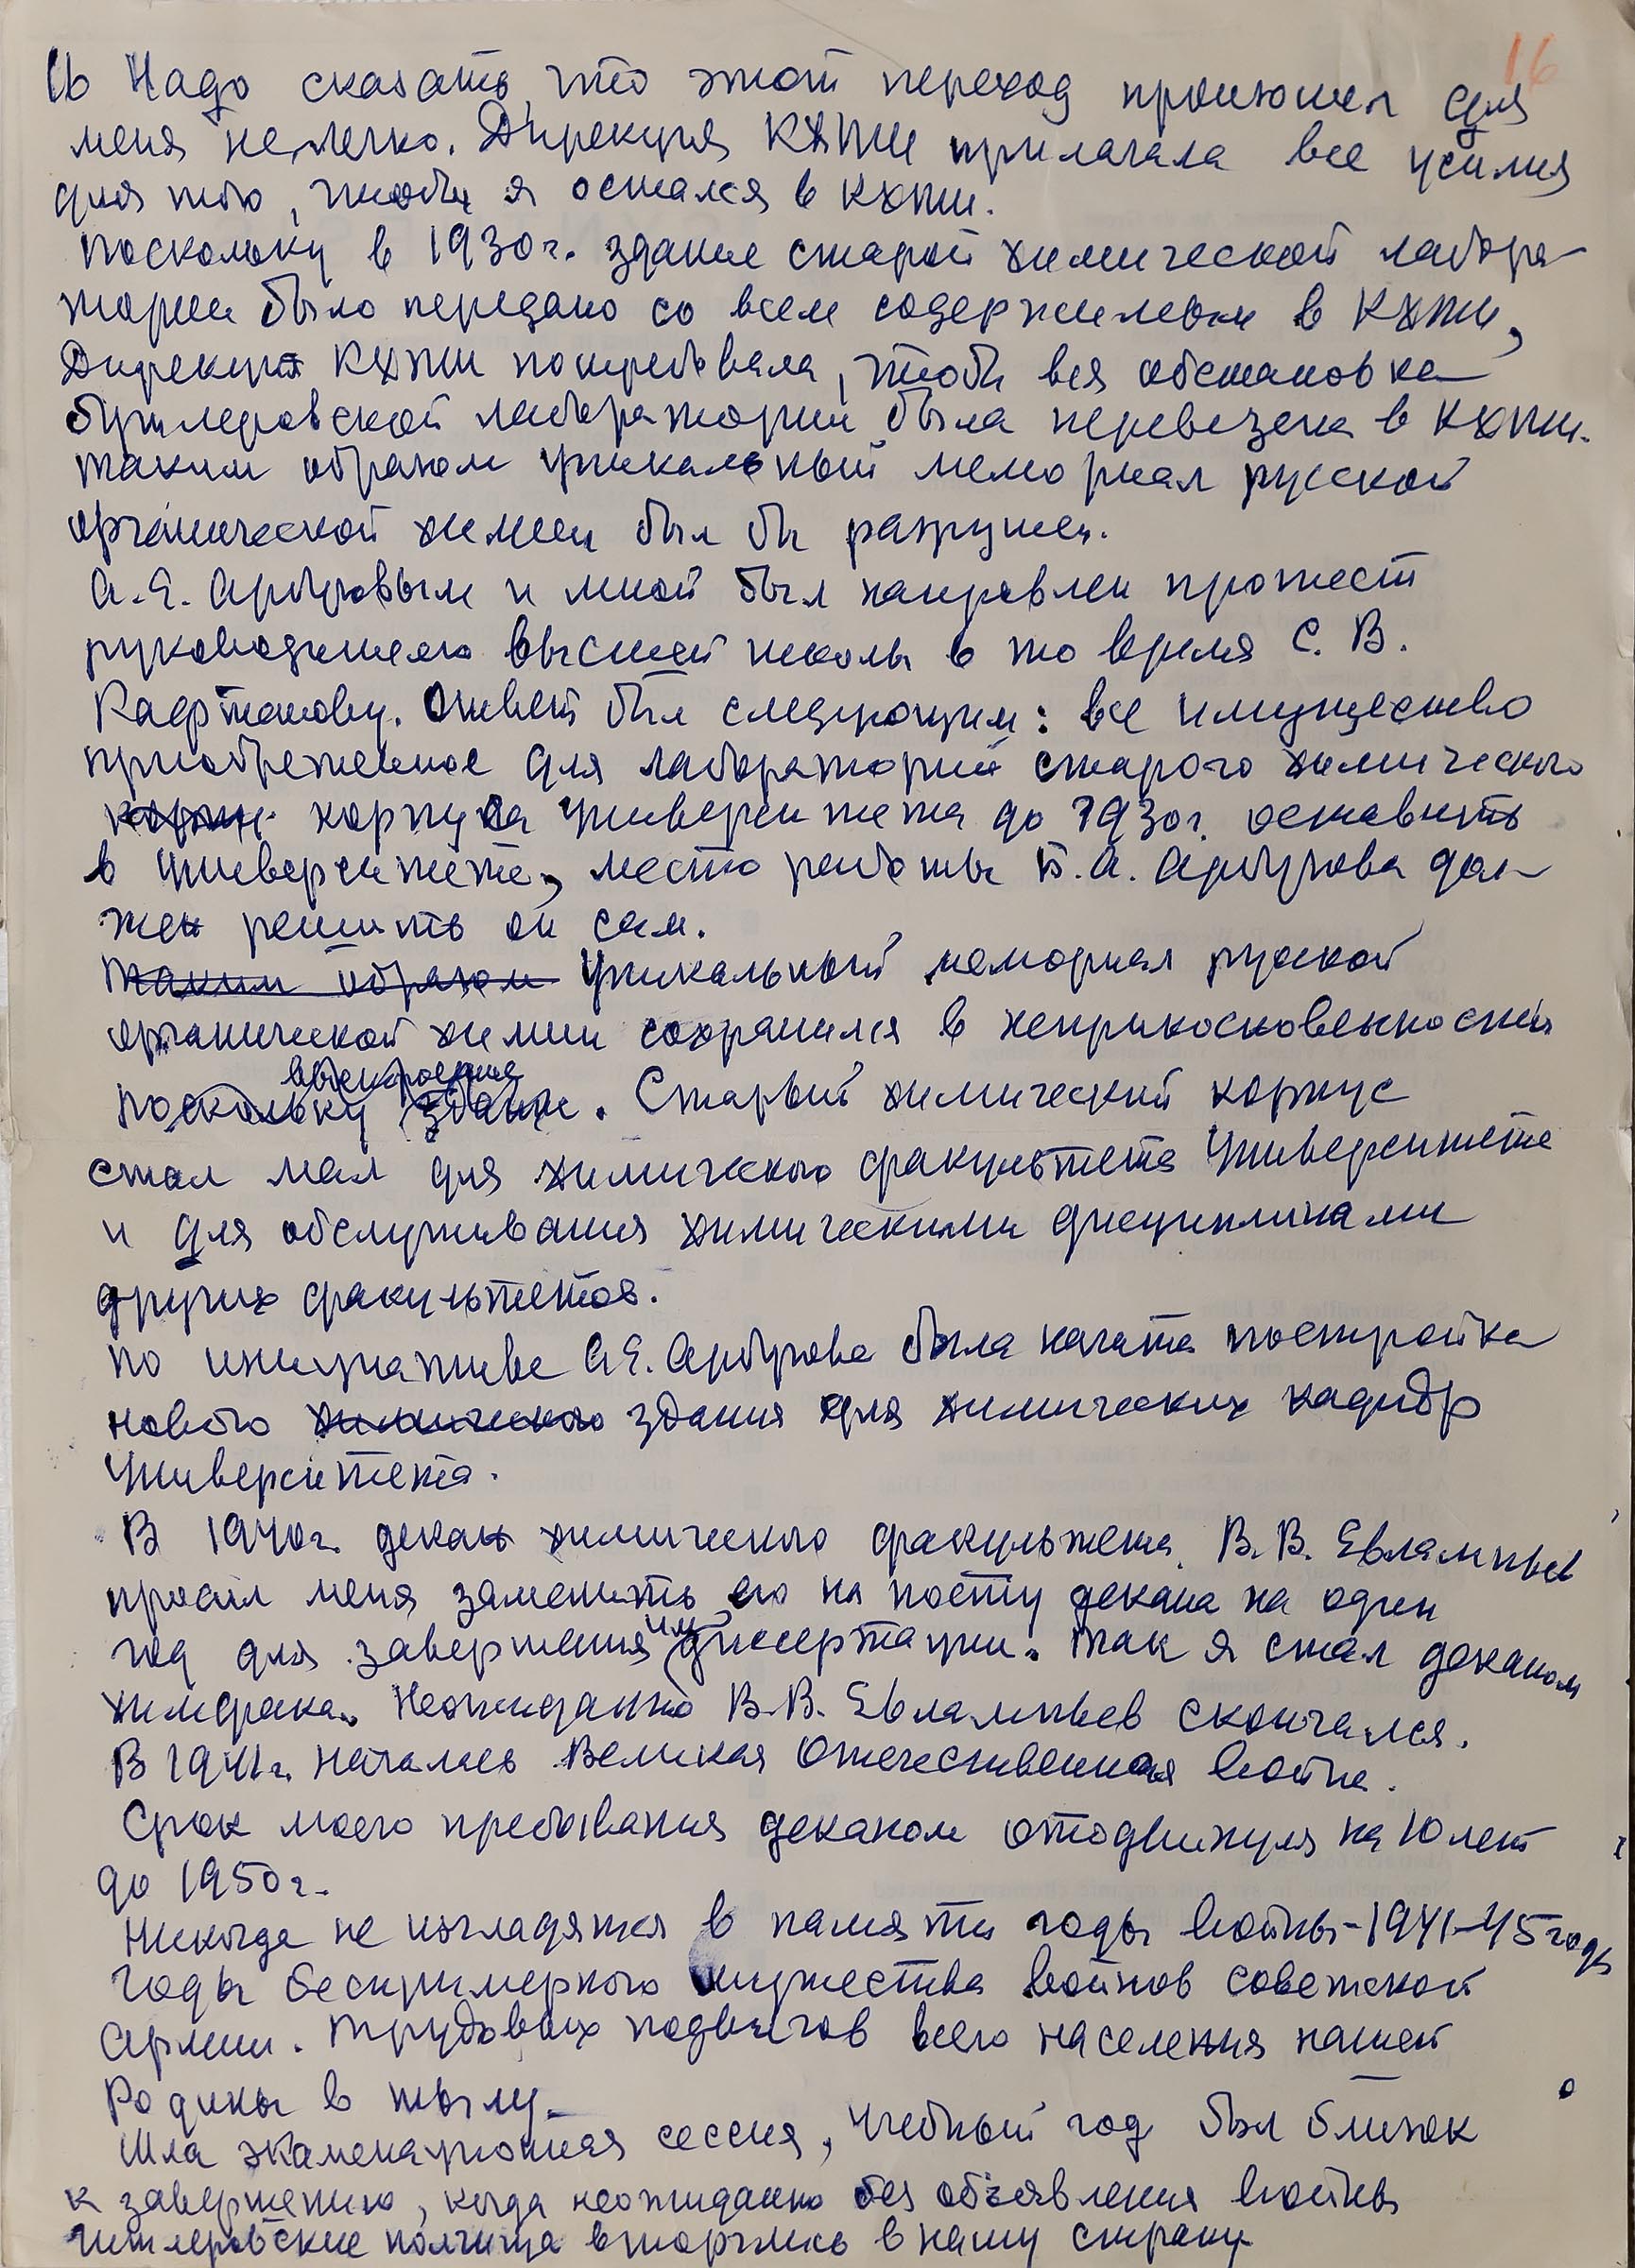 16
16 Надо сказать, что этот переход произошел для
меня нелегко. Дирекция КХТИ прилагала все усилия
для того, чтобы я остался в КХТИ.
Поскольку в 1930 г. здание старой химической лабора-
тории было передано со всем содержимым в КХТИ,
Дирекция КХТИ потребовала, чтобы вся обстановка
бутлеровской лаборатории была перевезена в КХТИ.
Таким образом уникальный мемориал русской
органической химии был бы разрушен.
А.Е. Арбузовым и мной был направлен протест
руководителю высшей школы в то время С. В.
Кафтанову. Ответ был следующим: все имущество
приобретенное для лаборатории старого химического
корпуса Университета до 1930 г. оставить
в Университете, место работы Б.А. Арбузова дол-
жен решить он сам.
Таким образом Уникальный мемориал русской
органической химии сохранился в неприкосновенности
выстроенные
поскольку здание. Старый химический корпус
стал мал для химического факультета Университета
и для обслуживания химическими дисциплинами
других факультетов.
По инициативе А.Е. Арбузова была начата постройка
нового химического здания для химических кафедр
Университета.
В 1940 г. декан химического факультета В.В. Евлампьев
просил меня заменить его на посту декана на один
год для завершения им диссертации. Так я стал деканом
химфака. Неожиданно В.В. Евлампьев скончался.
В 1941 г. началась Великая Отечественная война.
Срок моего пребывания деканом отодвинулся на 10 лет
до 1950 г.
Никогда не изгладятся в памяти годы войны - 1941-45 годы
годы беспримерного мужества воинов советской
Армии. Трудовых подвигов всего населения нашей
Родины в тылу.
Шла экзаменационная сессия, учебный год был близок
к завершению, когда неожиданно без объявления войны
гитлеровские полчища вторглись в нашу страну